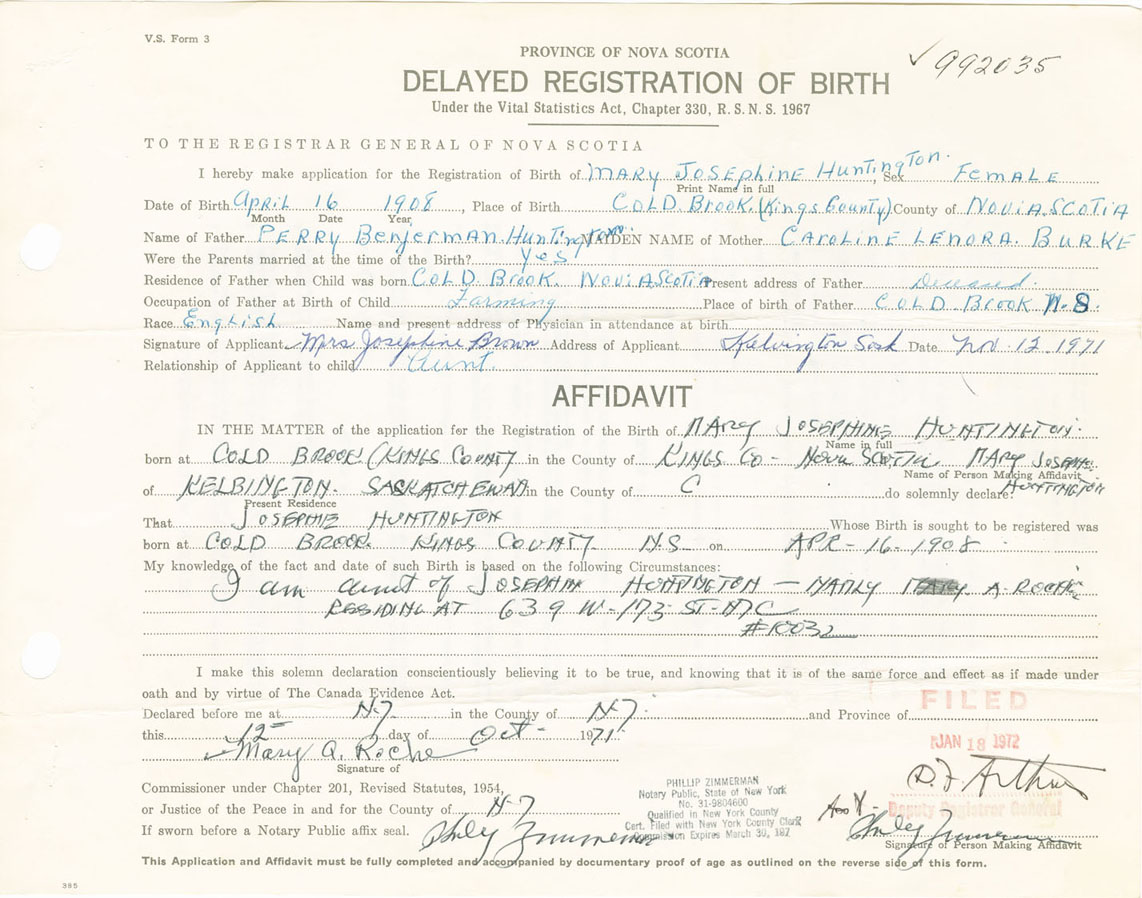 V.S. Form 3
PROVINCE OF NOVA SCOTIA
✓ 992035
DELAYED REGISTRATION OF BIRTH
Under the Vital Statistics Act, Chapter 330, R.S.N.S. 1967
TO THE REGISTRAR GENERAL OF NOVA SCOTIA
I hereby make application for the Registration of Birth of MARY JOSEPHINE HUNTINGTON, Sex FEMALE
Print Name in full
Date of Birth APRIL 16 1908, Place of Birth COLD. BROOK. (Kings County) County of NOVIA.SCOTIA
Month Date Year
Name of Father PERRY Benjerman. Huntington MAIDEN NAME of Mother CAROLINE LENORA. BURKE
Were the Parents married at the time of the Birth? Yes
Residence of Father when Child was born COLD. Brook. NOVIASCOTIA Present address of Father Deceased.
Occupation of Father at Birth of Child Farming Place of birth of Father COLD BROOK N.S.
Race English Name and present address of Physician in attendance at birth
Signature of Applicant Mrs Josephine Brown Address of Applicant Kelvington Sask Date Nov. 12. 1971
Relationship of Applicant to child Aunt.
AFFIDAVIT
IN THE MATTER of the application for the Registration of the Birth of MARY JOSEPHINE HUNTINGTON.
Name in full
born at COLD BROOK (KINGS COUNTY in the County of KINGS CO - NOVA SCOTIA MARY JOSEPHI
Name of Person Making Affidavit
of KELBINGTON. SASKATCHEWAN in the County of C do solemnly declare: HUNTINGTON
Present Residence
That JOSEPHIE HUNTINGTON Whose Birth is sought to be registered was
born at COLD BROOK. KINGS COUNTY N.S on APR - 16 - 1908
My knowledge of the fact and date of such Birth is based on the following Circumstances:
I am aunt of JOSEPHIN HUNTINGTON — A. ROCHE
RESIDING AT 639 W-173 ST- NYC
#10032
I make this solemn declaration conscientiously believing it to be true, and knowing that it is of the same force and effect as if made under
oath and by virtue of The Canada Evidence Act.
Declared before me at N.Y. in the County of N.Y. and Province of
FILED
this 12 day of Oct - 1971
JAN 18 1972
Mary A. Roche
Signature of
D.F. Arthur
Deputy Registrar General
Commissioner under Chapter 201, Revised Statutes, 1954,
or Justice of the Peace in and for the County of N.Y
If sworn before a Notary Public affix seal.
PHILLIP ZIMMERMAN
Notary Public, State of New York
No. 31-9804600
Qualified in New York County
Cert. Filed with New York County Clerk
Commission Expires March 30, 197
Signature of Person Making Affidavit
This Application and Affidavit must be fully completed and accompanied by documentary proof of age as outlined on the reverse side of this form.
385